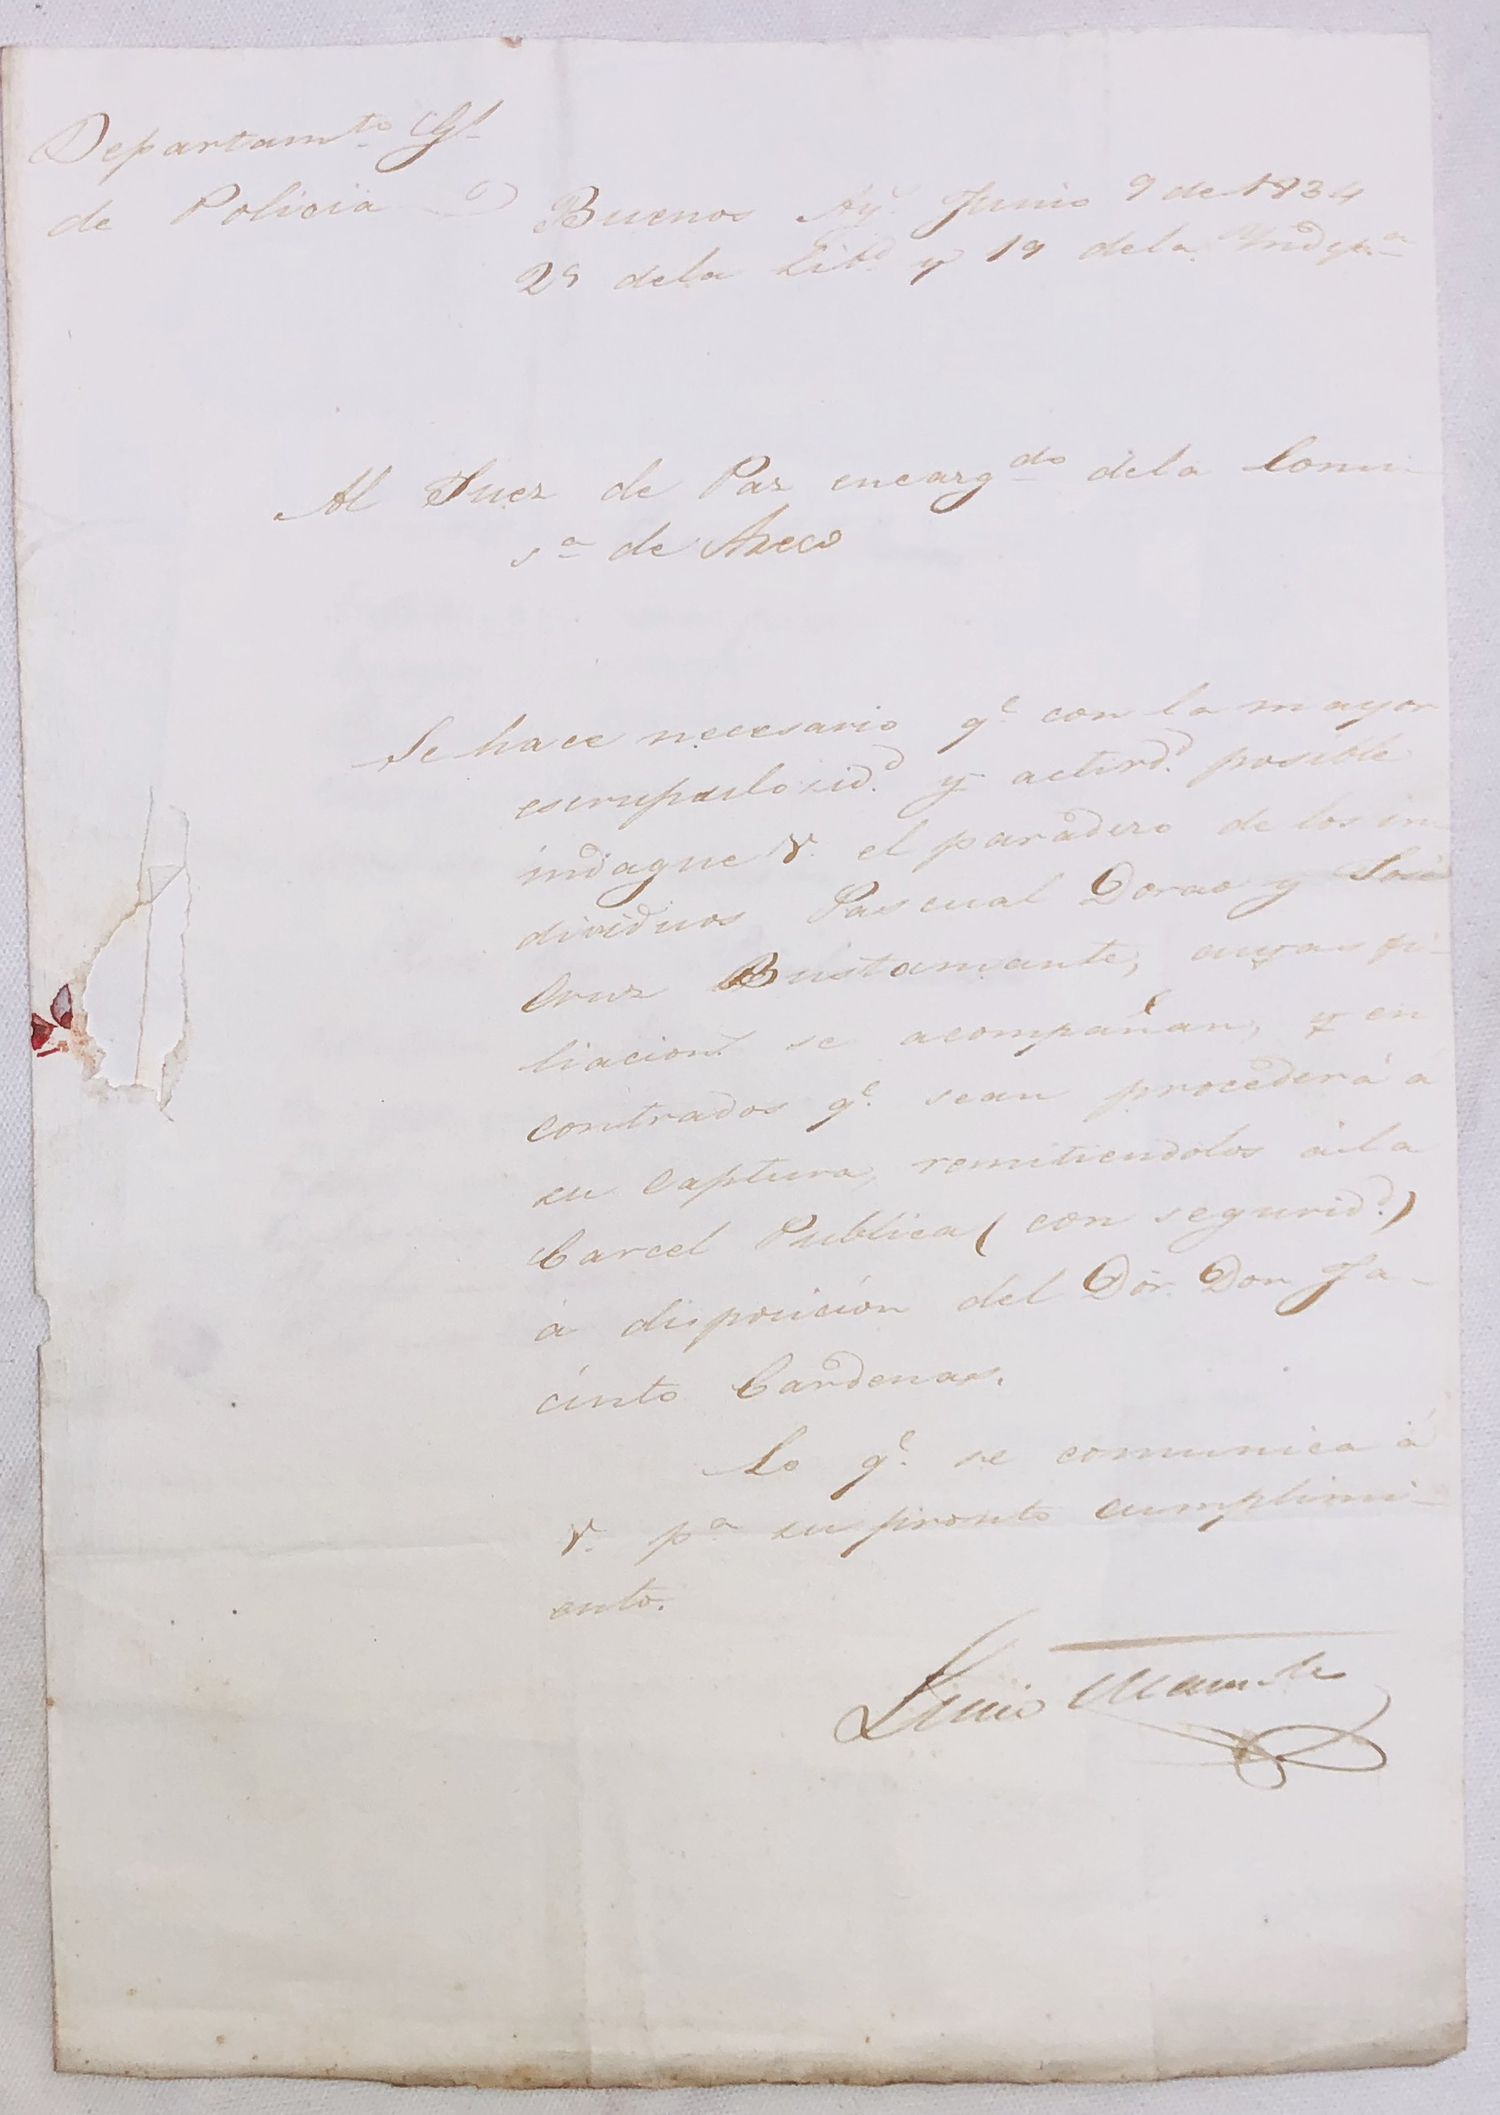 Departam.to G.l
de Policia
Buenos Ay.s Junio 9 de 1834
25 dela Lib.d y 19 dela Indep.a
Al Juez de Paz encarg.do dela Comi-
s.a de Areco
Se hace necesario q.e con la mayor
escrupulosid.d y activd.d posible
indague V. el paradero de los in-
dividuos Pascual Dorao y José
Cruz Bustamante, cuyas fi-
liacion.s se acompañan, y en
contrados q.e sean procederá á
su captura, remitiendolos á la
Carcel Publica (con segurid.d)
á disposición del Dor. Don Ja-
cinto Cardenas.
Lo q.e se comunica á
V. p.a su pronto cumplimi-
ento.
Lucio